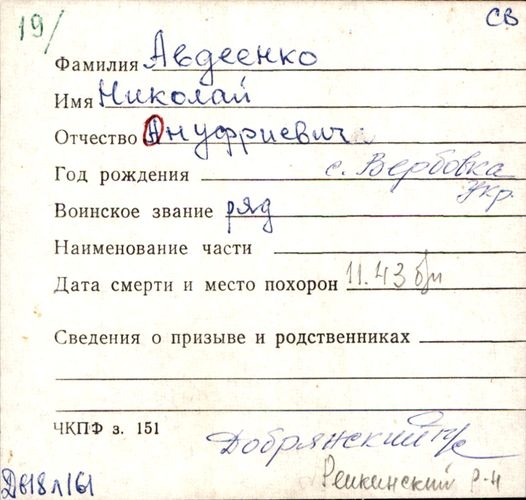 19/ СВ
Фамилия Авдеенко
Имя Николай
Отчество Ануфриевич
Год рождения с. Вербовка
Укр.
Воинское звание ряд
Наименование части
Дата смерти и место похорон 11.43
Сведения о призыве и родственниках
ЧКПФ з. 151
Добрянский
Д618л161 р-н